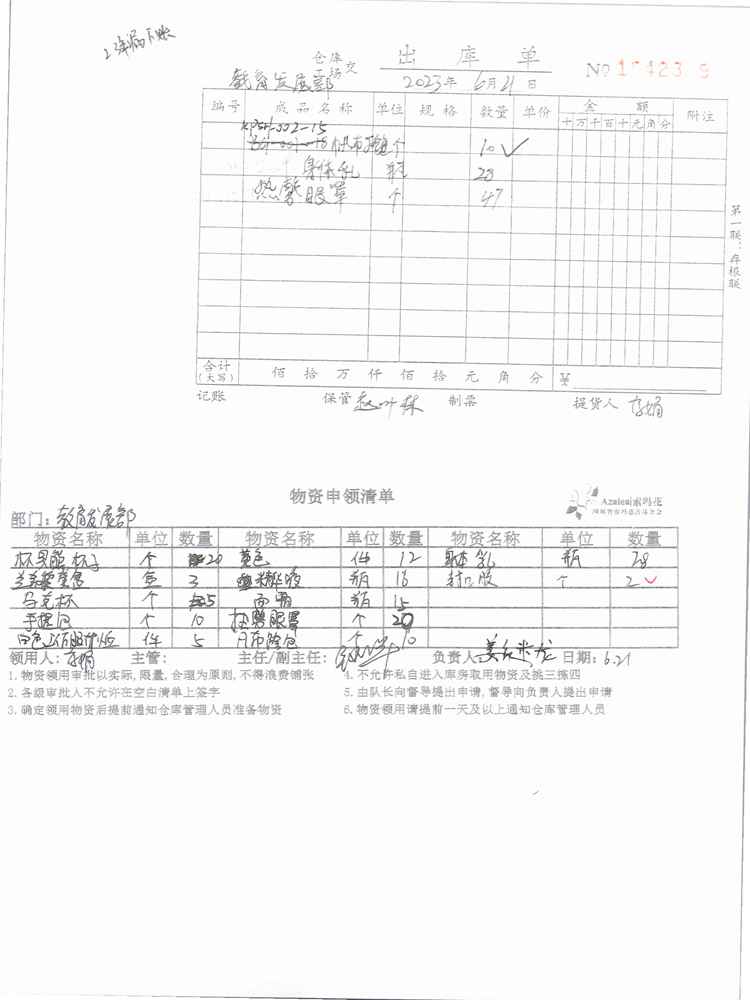 仓库 出库单
市场 交
教育发展部 2023年6月21日 No
编号 成品名称 单位 规格 数量 单价 金额 附注
十万千百十元角分
KPSH-002-15
个 10 ✓
身体乳 瓶 28
热敷眼罩 个 47
第一联:存根联
合计(大写) 佰拾万仟佰拾元角分 ¥
记账 保管 制票 提货人 李娟
物资申领清单 Azalea索玛花
部门:教育发展部
物资名称 单位 数量 物资名称 单位 数量 物资名称 单位 数量
个 20 黄色 件 12 身体乳 瓶 28
3 精华液 瓶 16 封口胶 个 2
马克杯 个 5 面霜 瓶 15
手提包 个 10 热敷眼罩 个 20
白色 件 5 个 10
领用人:李娟 主管: 主任/副主任: 负责人: 日期:6.21
1.物资领用审批以实际,限量,合理为原则,不得浪费铺张 4.不允许私自进入库房取用物资及挑三拣四
2.各级审批人不允许在空白清单上签字 5.由队长向督导提出申请,督导向负责人提出申请
3.确定领用物资后提前通知仓库管理人员准备物资 6.物资领用请提前一天及以上通知仓库管理人员